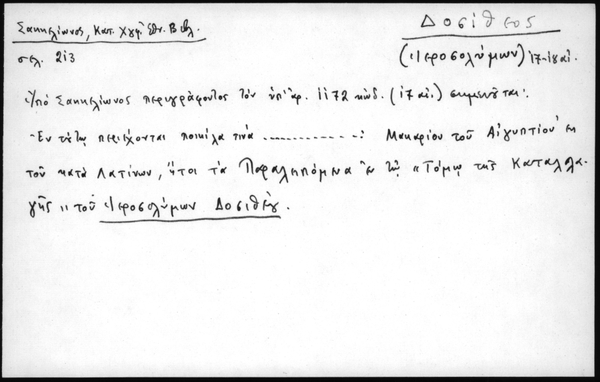 Σακκελίωνος, Κατ. Χγφ. Εθν. Βιβλ.
Δοσίθεος
σελ. 213
(Ιεροσολύμων) 17-18 αἰ.
Ὑπό Σακκελίωνος περιγράφοντος τόν ὑπ' ἀρ. 1172 κώδ. (17 αἰ.) σημειοῦται:
Ἐν τούτῳ περιέχονται ποικίλα τινά ..............: Μακαρίου τοῦ Αἰγυπτίου ἐκ
τοῦ κατά Λατίνων, ἤτοι τά Παραλειπόμενα ἐν τῷ «Τόμῳ τῆς Καταλλα-
γῆς» τοῦ Ἱεροσολύμων Δοσιθέου.